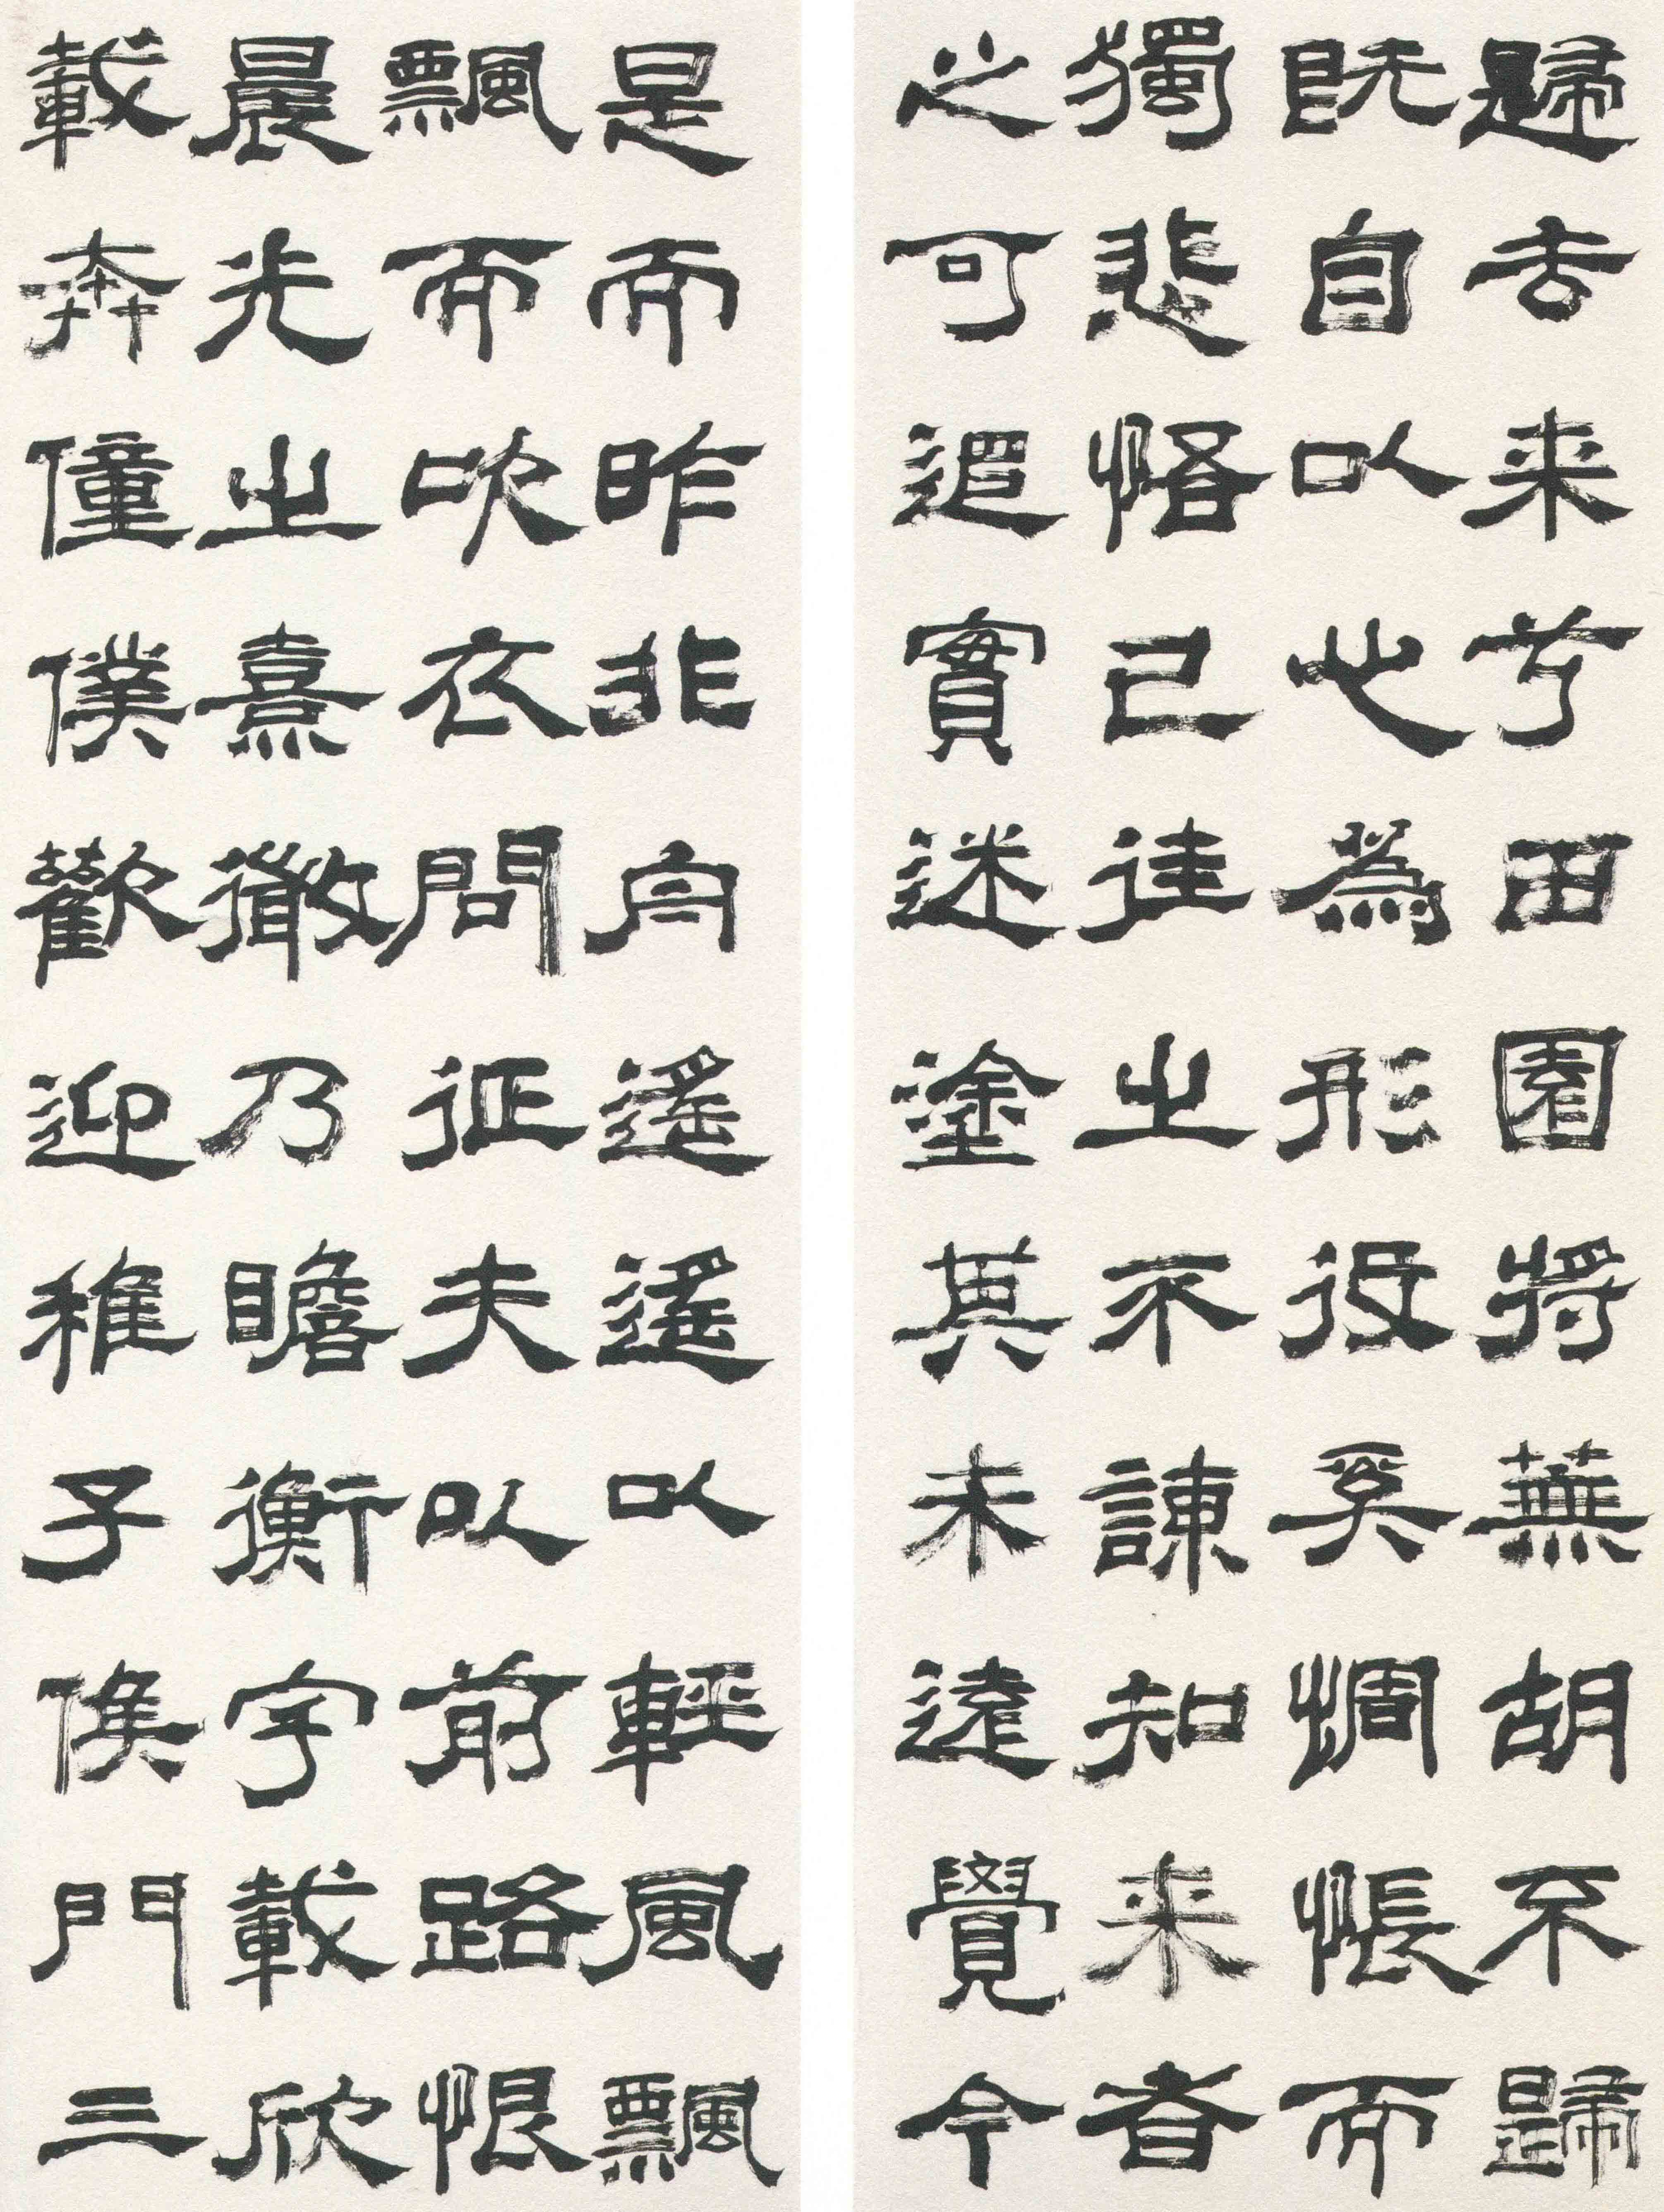 歸去来兮田園將蕪胡不歸
既自以心為形役奚惆悵而
獨悲悟已往之不諫知来者
之可追實迷塗其未遠覺今
是而昨非舟遙遙以輕風飄
飄而吹衣問征夫以前路恨
晨光之熹微乃瞻衡宇載欣
載奔僮僕歡迎稚子候門三